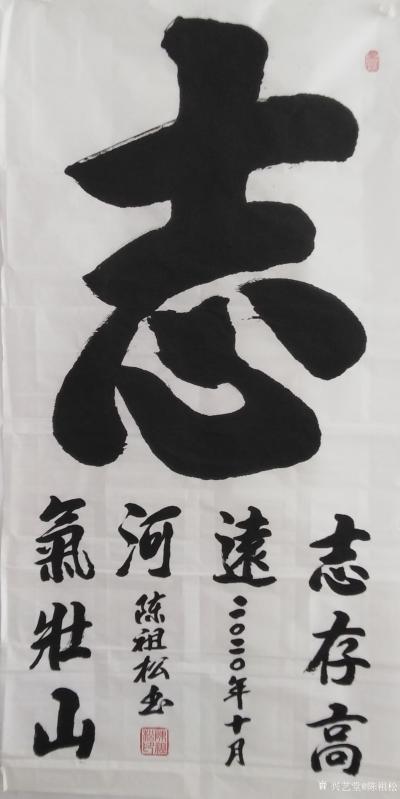 志
志存高
遠
二〇二〇年十月
氣壯山
河
陈祖松书
兴艺堂@陈祖松